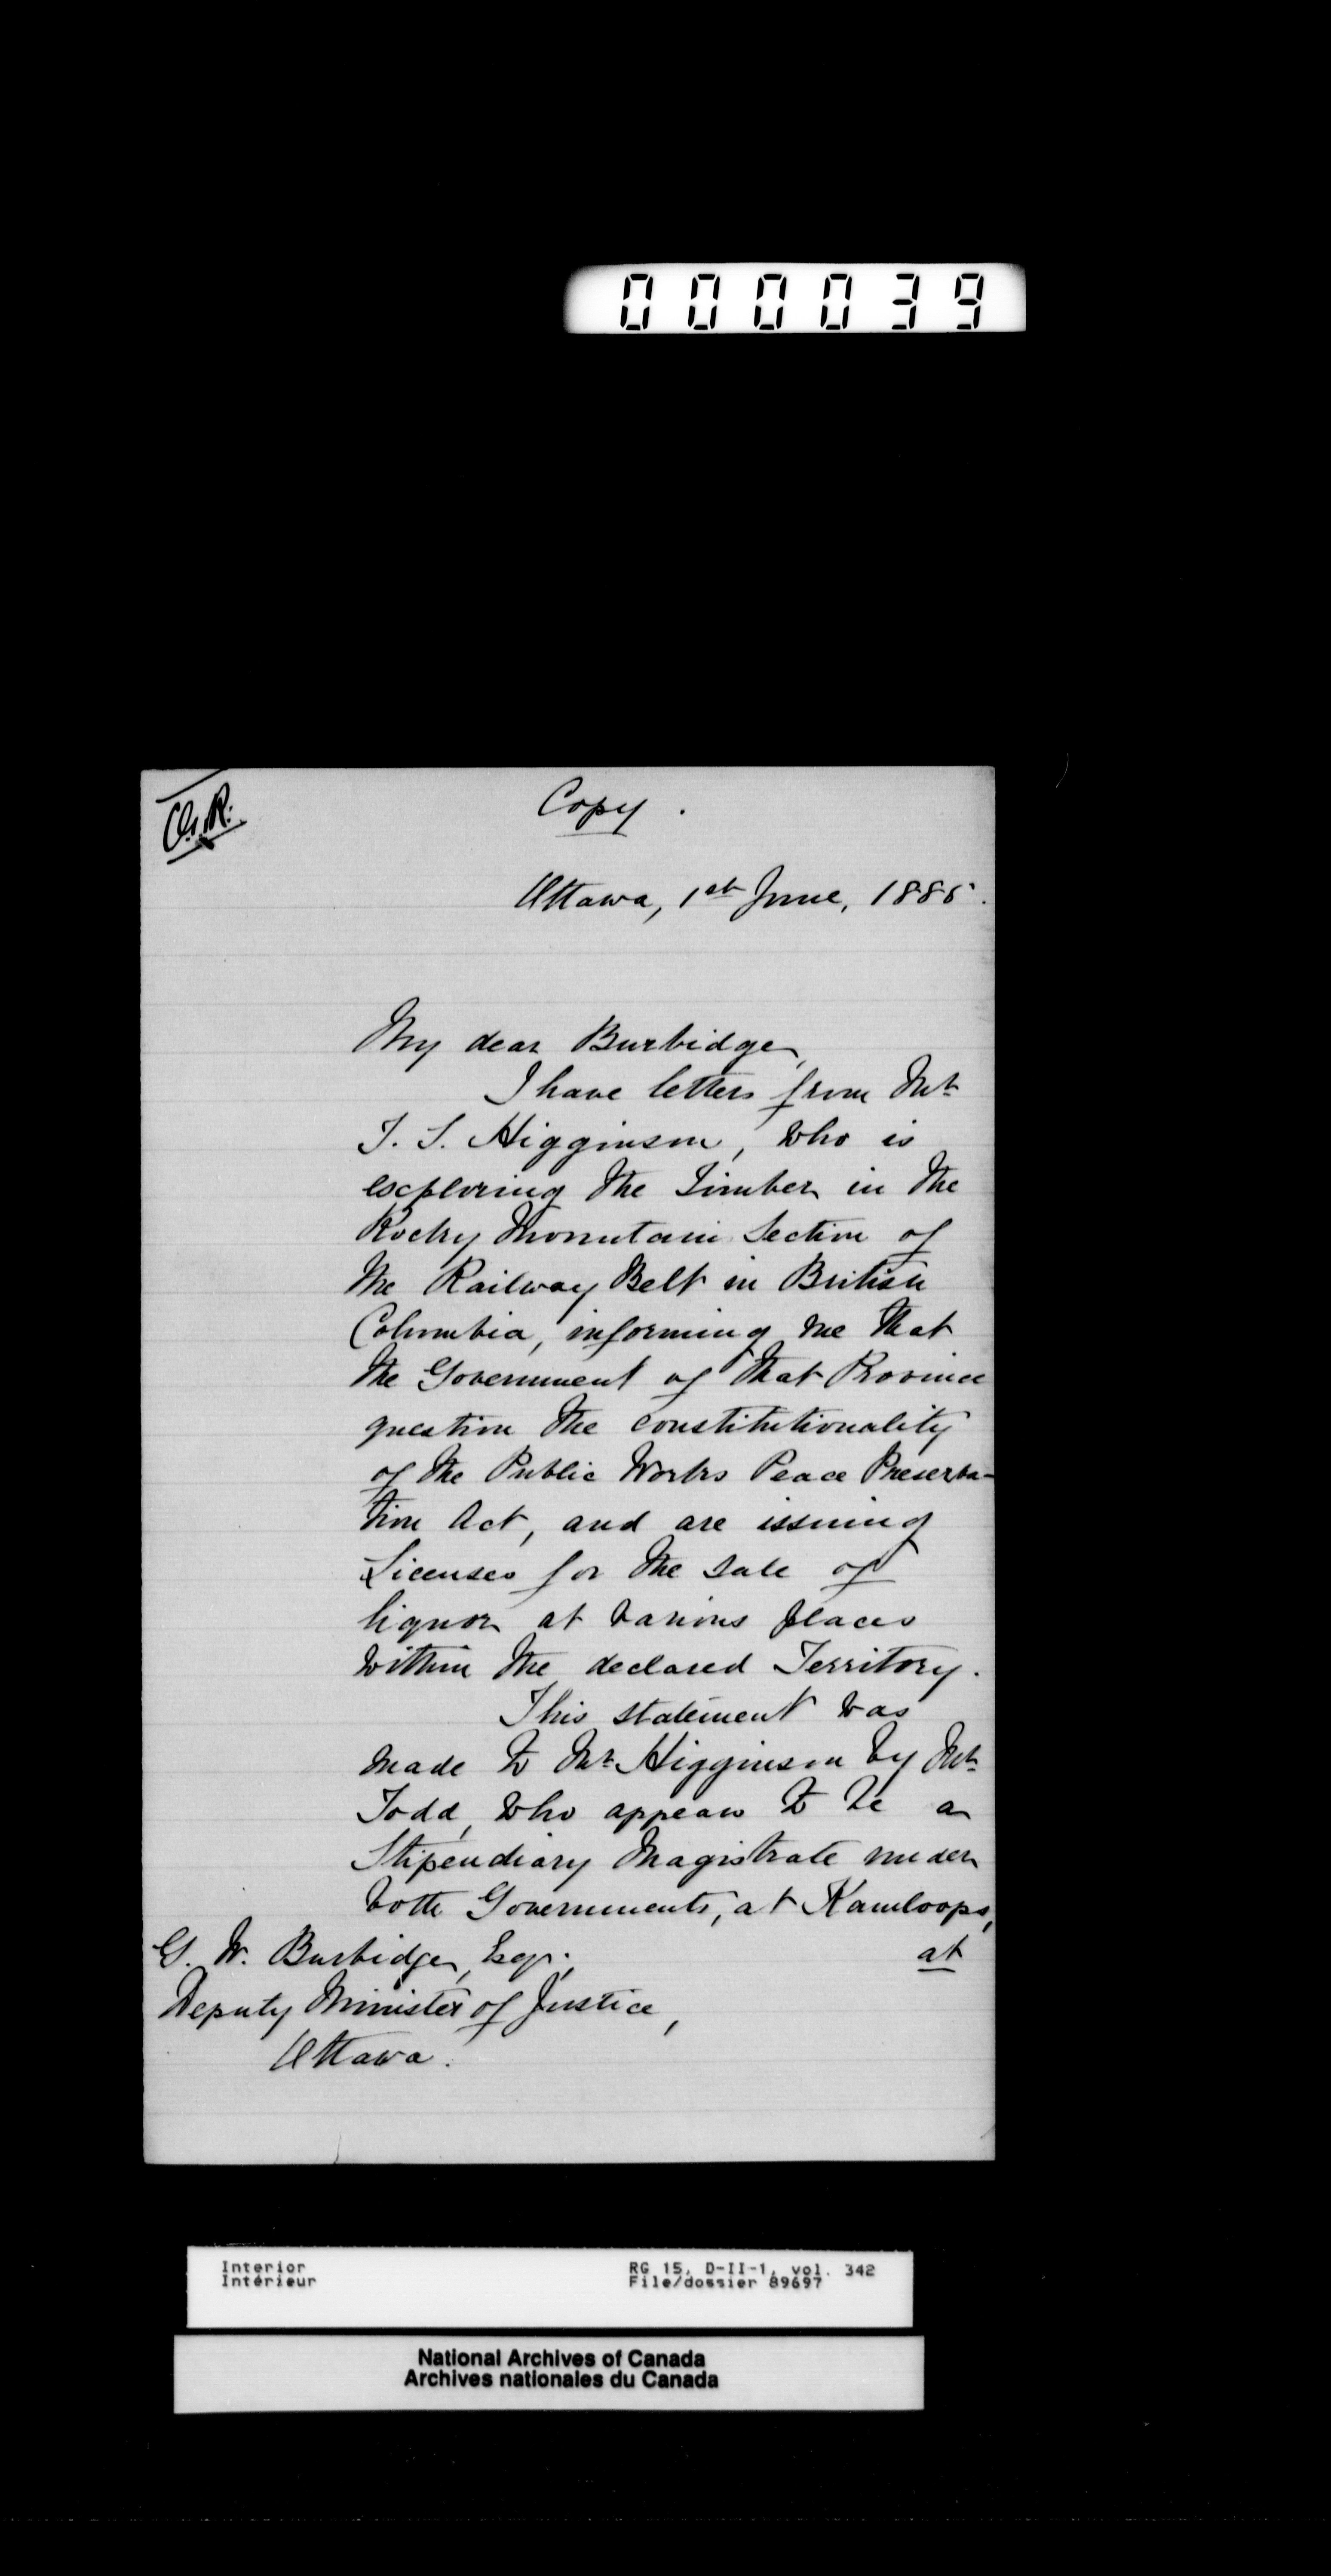 000039
Copy.
Ottawa, 1st June, 1885.
My dear Burbidge,
I have letters from Mr
T. S. Higginson, who is
exploring the Timber in the
Rocky Mountain Section of
the Railway Belt in British
Columbia, informing me that
the Government of that Province
question the constitutionality
of the Public Works Peace Preserva-
tion Act, and are issuing
Licenses for the sale of
liquor at various places
within the declared Territory.
This statement was
made to Mr Higginson by Mr
Todd, who appears to be a
Stipendiary Magistrate under
both Governments, at Kamloops,
at
G. W. Burbidge, Esqr.,
Deputy Minister of Justice,
Ottawa.
Interior RG 15, D-II-1, vol. 342
Intérieur File/dossier 89697
National Archives of Canada
Archives nationales du Canada